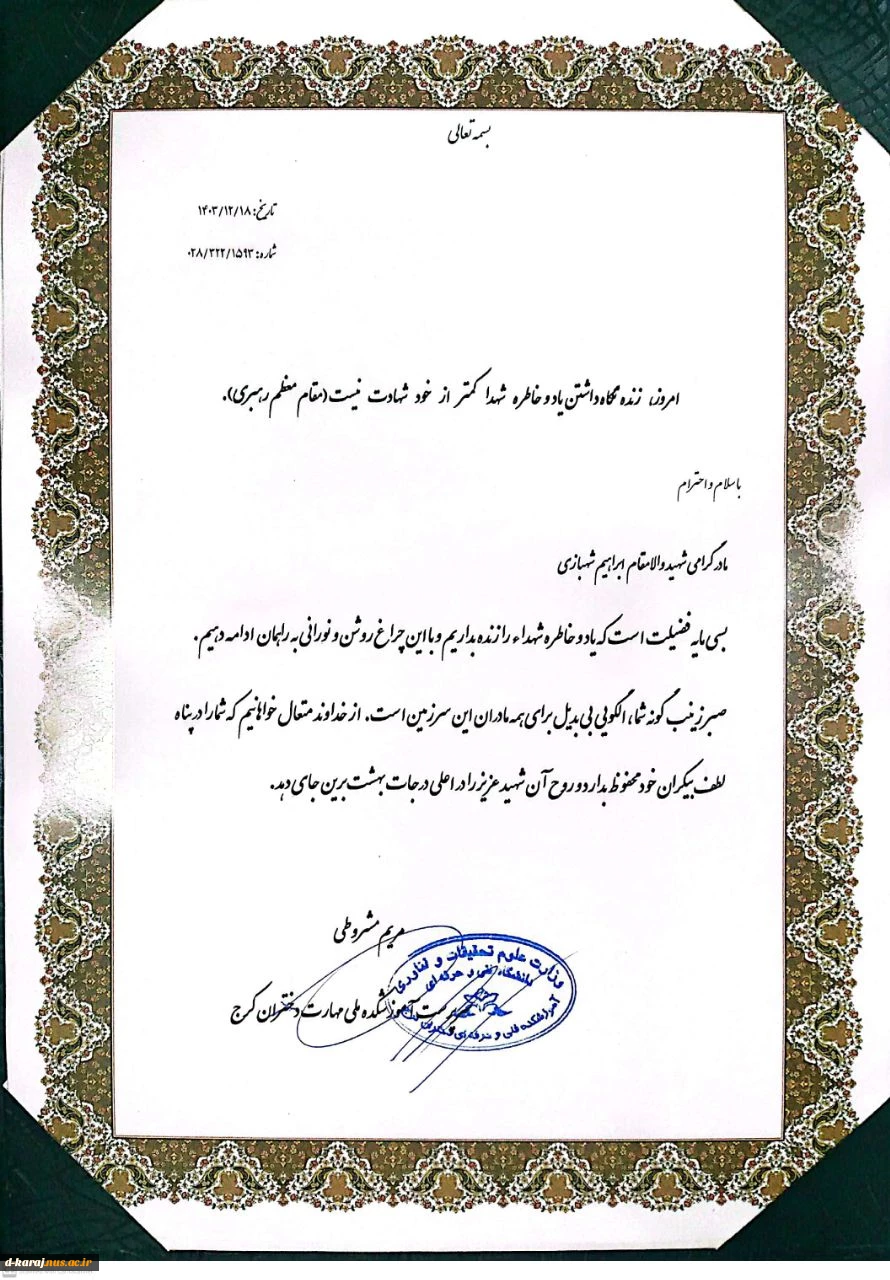 بسمه تعالی
تاریخ: ۱۴۰۳/۱۲/۱۸
شماره: ۰۲۸/۳۲۲/۱۵۹۳
امروز، زنده نگاه داشتن یاد و خاطره شهدا کمتر از خود شهادت نیست (مقام معظم رهبری).
با سلام و احترام
مادر گرامی شهید والامقام ابراهیم شهبازی
بسی مایه فضیلت است که یاد و خاطره شهداء را زنده بداریم و با این چراغ روشن و نورانی به راهمان ادامه دهیم.
صبر زینب گونه شما، الگویی بی بدیل برای همه مادران این سرزمین است. از خداوند متعال خواهانیم که شما را در پناه
لطف بیکران خود محفوظ بدارد و روح آن شهید عزیز را در اعلی درجات بهشت برین جای دهد.
مریم مشروطی
سرپرست آموزشکده ملی مهارت دختران کرج
وزارت علوم تحقیقات و فناوری
دانشگاه فنی و حرفه ای
آموزشکده فنی و حرفه ای دختران
d-karaj.nus.ac.ir